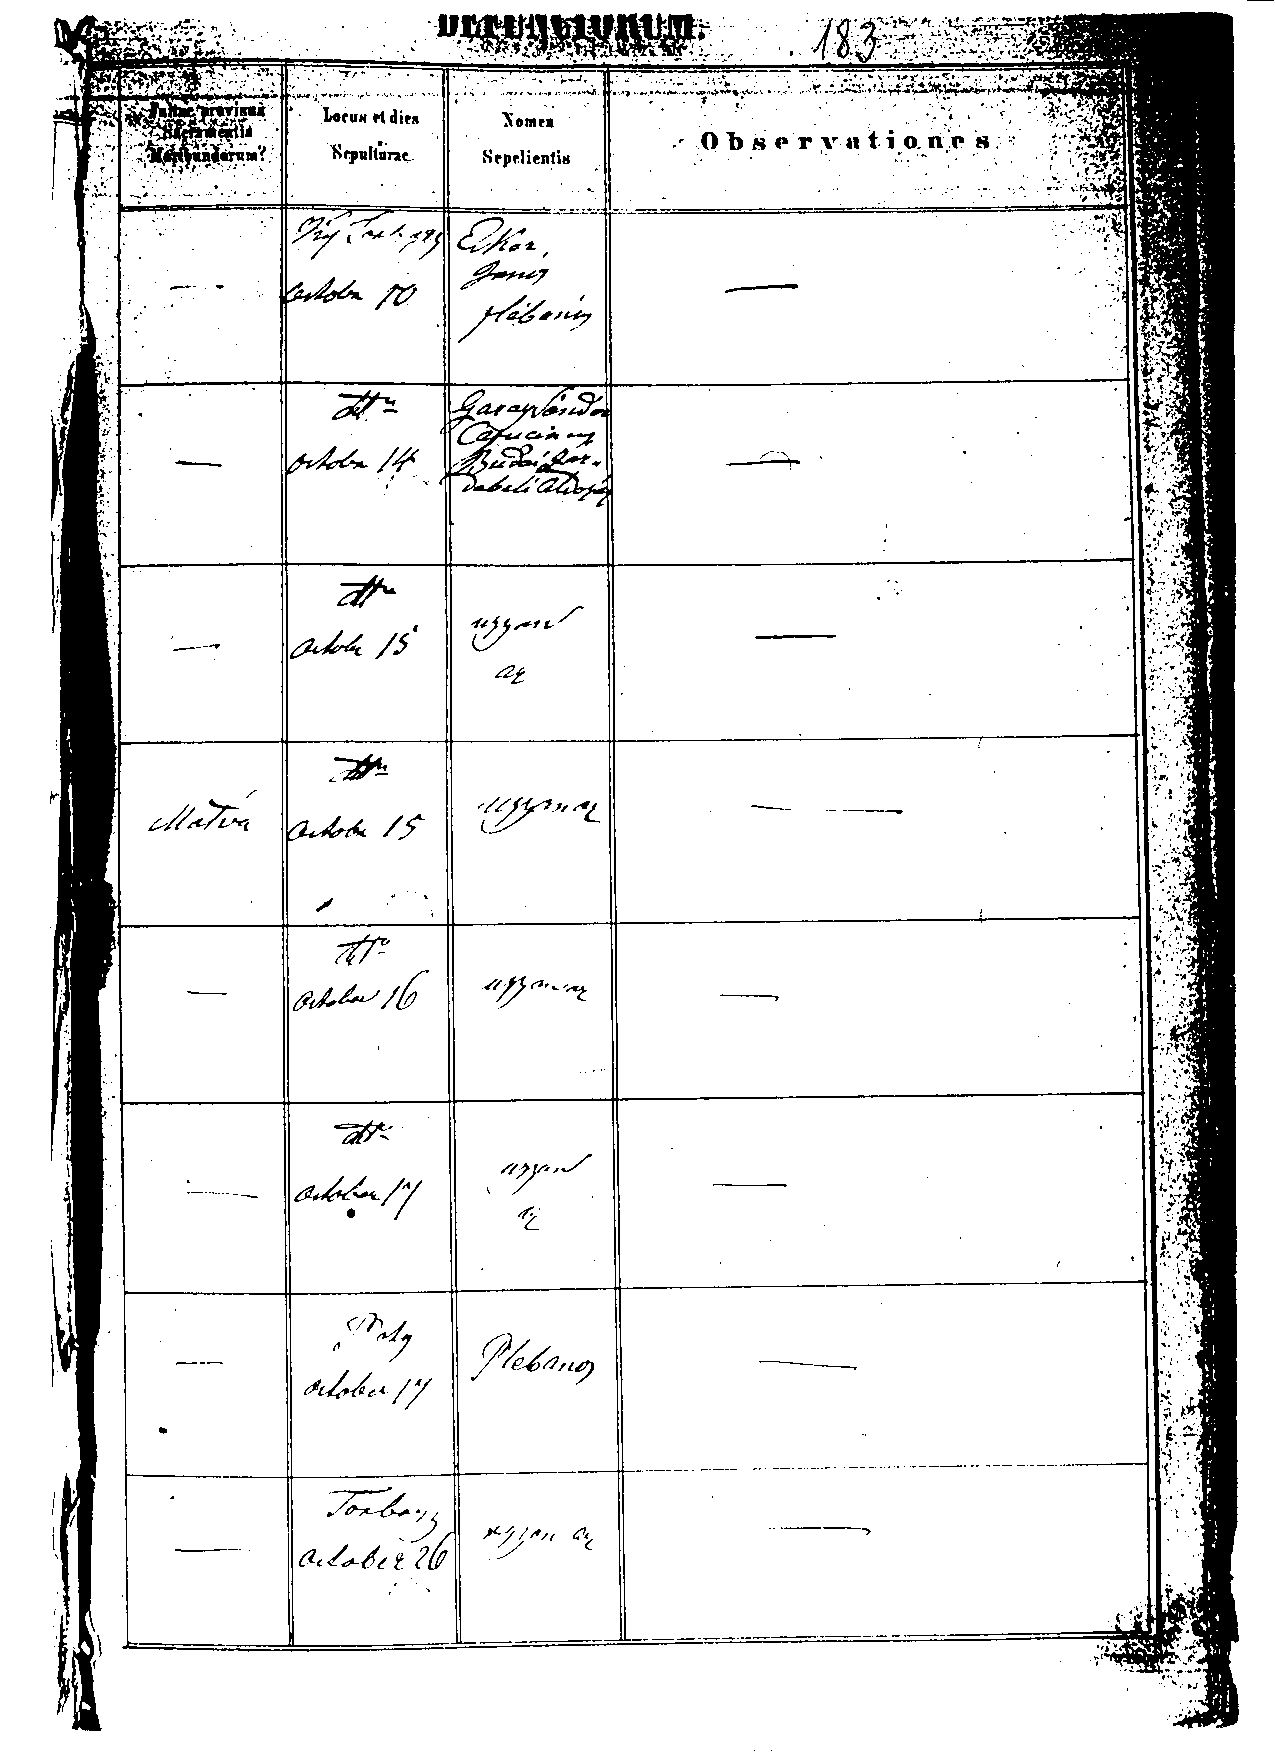 DEFUNCTORUM. 183
Fuitne provisus
Sacramentis
Moribundorum?
Locus et dies
Sepulturae
Nomen
Sepelientis
Observationes
—
October 10
János
plébános
—
—
dtto
october 14
Garay Sándor
Capucinus
Budai
—
—
dtto
October 15
ugyan
az
—
dtto
October 15
ugyanaz
— —
—
dtto
October 16
ugyanaz
—
—
dtto
october 17
ugyan
az
—
—
october 17
Plebanos
—
—
Torbágy
October 26
ugyan az
—